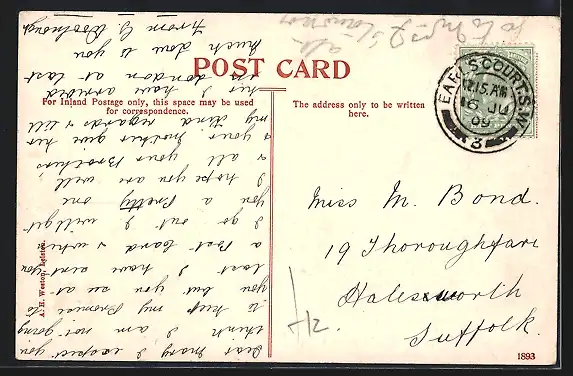 POST CARD
For Inland Postage only, this space may be used
for correspondence.
The address only to be written
here.
EARL'S COURT. S.W.
12.15 AM
16 JU
09
3
Dear Mary I expect you
think I am not going
to keep my Promise to
you but you see at
last I have sent you
a Post card & when
I go out I will get
you a Pretty one
I hope you are well
& all your Brothers
& your Mother give her
my kind regards & tell
her I have arrived
in London at last
much love to you
from G Woolnough
Miss M. Bond.
19 Thoroughfare
Halesworth
Suffolk.
A. H. Weston, Leiston.
1893